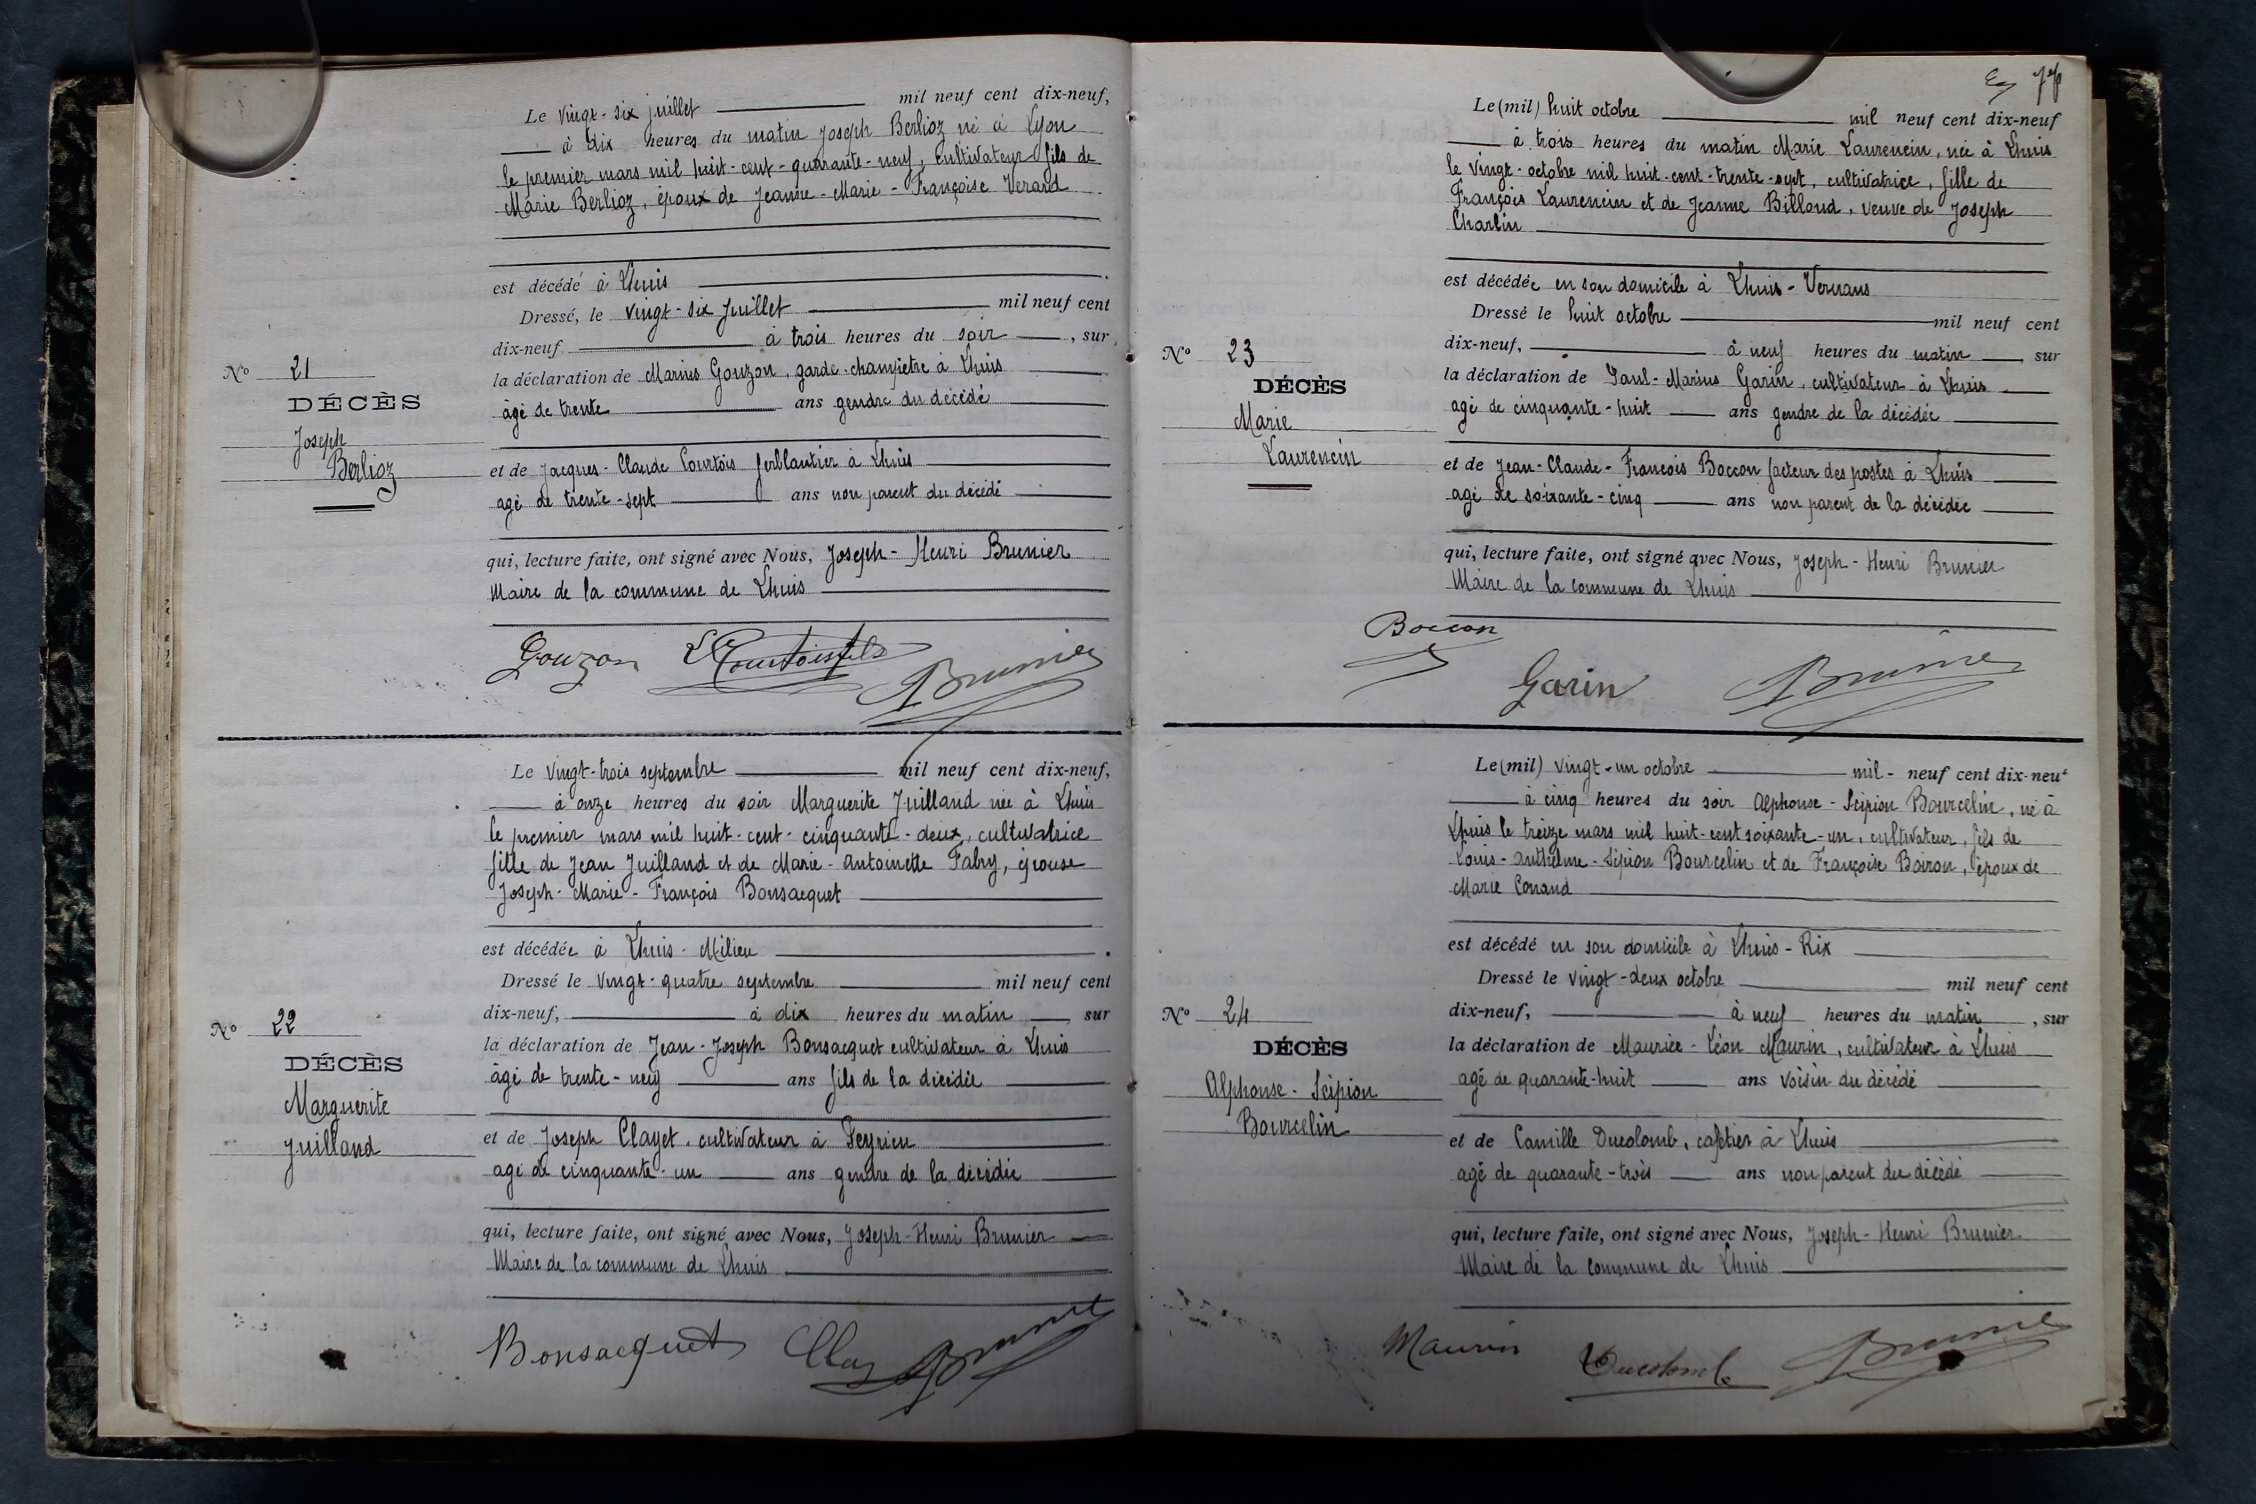 Le vingt-six juillet mil neuf cent dix-neuf,
à dix heures du matin Joseph Berlioz né à Lyon
le premier mars mil huit-cent-quarante-neuf, cultivateur fils de
Marie Berlioz, époux de Jeanne-Marie-Françoise Verard
est décédé à Lhuis
Dressé, le vingt-six Juillet mil neuf cent
dix-neuf à trois heures du soir, sur
la déclaration de Marius Gouzon, garde-champêtre à Lhuis
âgé de trente ans gendre du décédé
et de Jacques-Claude Courtois ferblantier à Lhuis
agé de trente-sept ans non parent du décédé
qui, lecture faite, ont signé avec Nous, Joseph-Henri Brunier
Maire de la commune de Lhuis
Gouzon Courtois fils Brunier
No 21
DÉCÈS
Joseph
Berlioz
Le vingt-trois septembre mil neuf cent dix-neuf,
à onze heures du soir Marguerite Juilland née à Lhuis
le premier mars mil huit-cent-cinquante-deux, cultivatrice
fille de Jean Juilland et de Marie-Antoinette Fabry, épouse
Joseph-Marie-François Bonsacquet
est décédée à Lhuis-Milieu.
Dressé le vingt-quatre septembre mil neuf cent
dix-neuf, à dix heures du matin sur
la déclaration de Jean-Joseph Bonsacquet cultivateur à Lhuis
âgé de trente-neuf ans fils de la décédée
et de Joseph Clayet, cultivateur à Peyrieu
agé de cinquante-un ans gendre de la décédée
qui, lecture faite, ont signé avec Nous, Joseph-Henri Brunier
Maire de la commune de Lhuis
Bonsacquet Clay Brunier
No 22
DÉCÈS
Marguerite
Juilland
77
Le (mil) huit octobre mil neuf cent dix-neuf
à trois heures du matin Marie Laurencin, née à Lhuis
le vingt-octobre mil huit-cent-trente-sept, cultivatrice, fille de
François Laurencin et de Jeanne Billoud, veuve de Joseph
Charlin
est décédée en son domicile à Lhuis-Vernans
Dressé le huit octobre mil neuf cent
dix-neuf, à neuf heures du matin sur
la déclaration de Paul-Marius Garin, cultivateur à Lhuis
agé de cinquante-huit ans gendre de la décédée
et de Jean-Claude-François Boccon facteur des postes à Lhuis
agé de soixante-cinq ans non parent de la décédée
qui, lecture faite, ont signé avec Nous, Joseph-Henri Brunier
Maire de la commune de Lhuis
Boccon
Garin Brunier
No 23
DÉCÈS
Marie
Laurencin
Le (mil) vingt-un octobre mil-neuf cent dix-neuf
à cinq heures du soir Alphonse-Scipion Bourcelin, né à
Lhuis le treize mars mil huit-cent soixante-un, cultivateur, fils de
Louis-Anthelme-Sipion Bourcelin et de Françoise Boiron, époux de
Marie Conand
est décédé en son domicile à Lhuis-Rix
Dressé le vingt-deux octobre mil neuf cent
dix-neuf, à neuf heures du matin, sur
la déclaration de Maurice-Léon Maurin, cultivateur à Lhuis
agé de quarante-huit ans voisin du décédé
et de Camille Ducolomb, cafetier à Lhuis
agé de quarante-trois ans non parent du décédé
qui, lecture faite, ont signé avec Nous, Joseph-Henri Brunier
Maire de la commune de Lhuis
Maurin Ducolomb Brunier
No 24
DÉCÈS
Alphonse-Scipion
Bourcelin